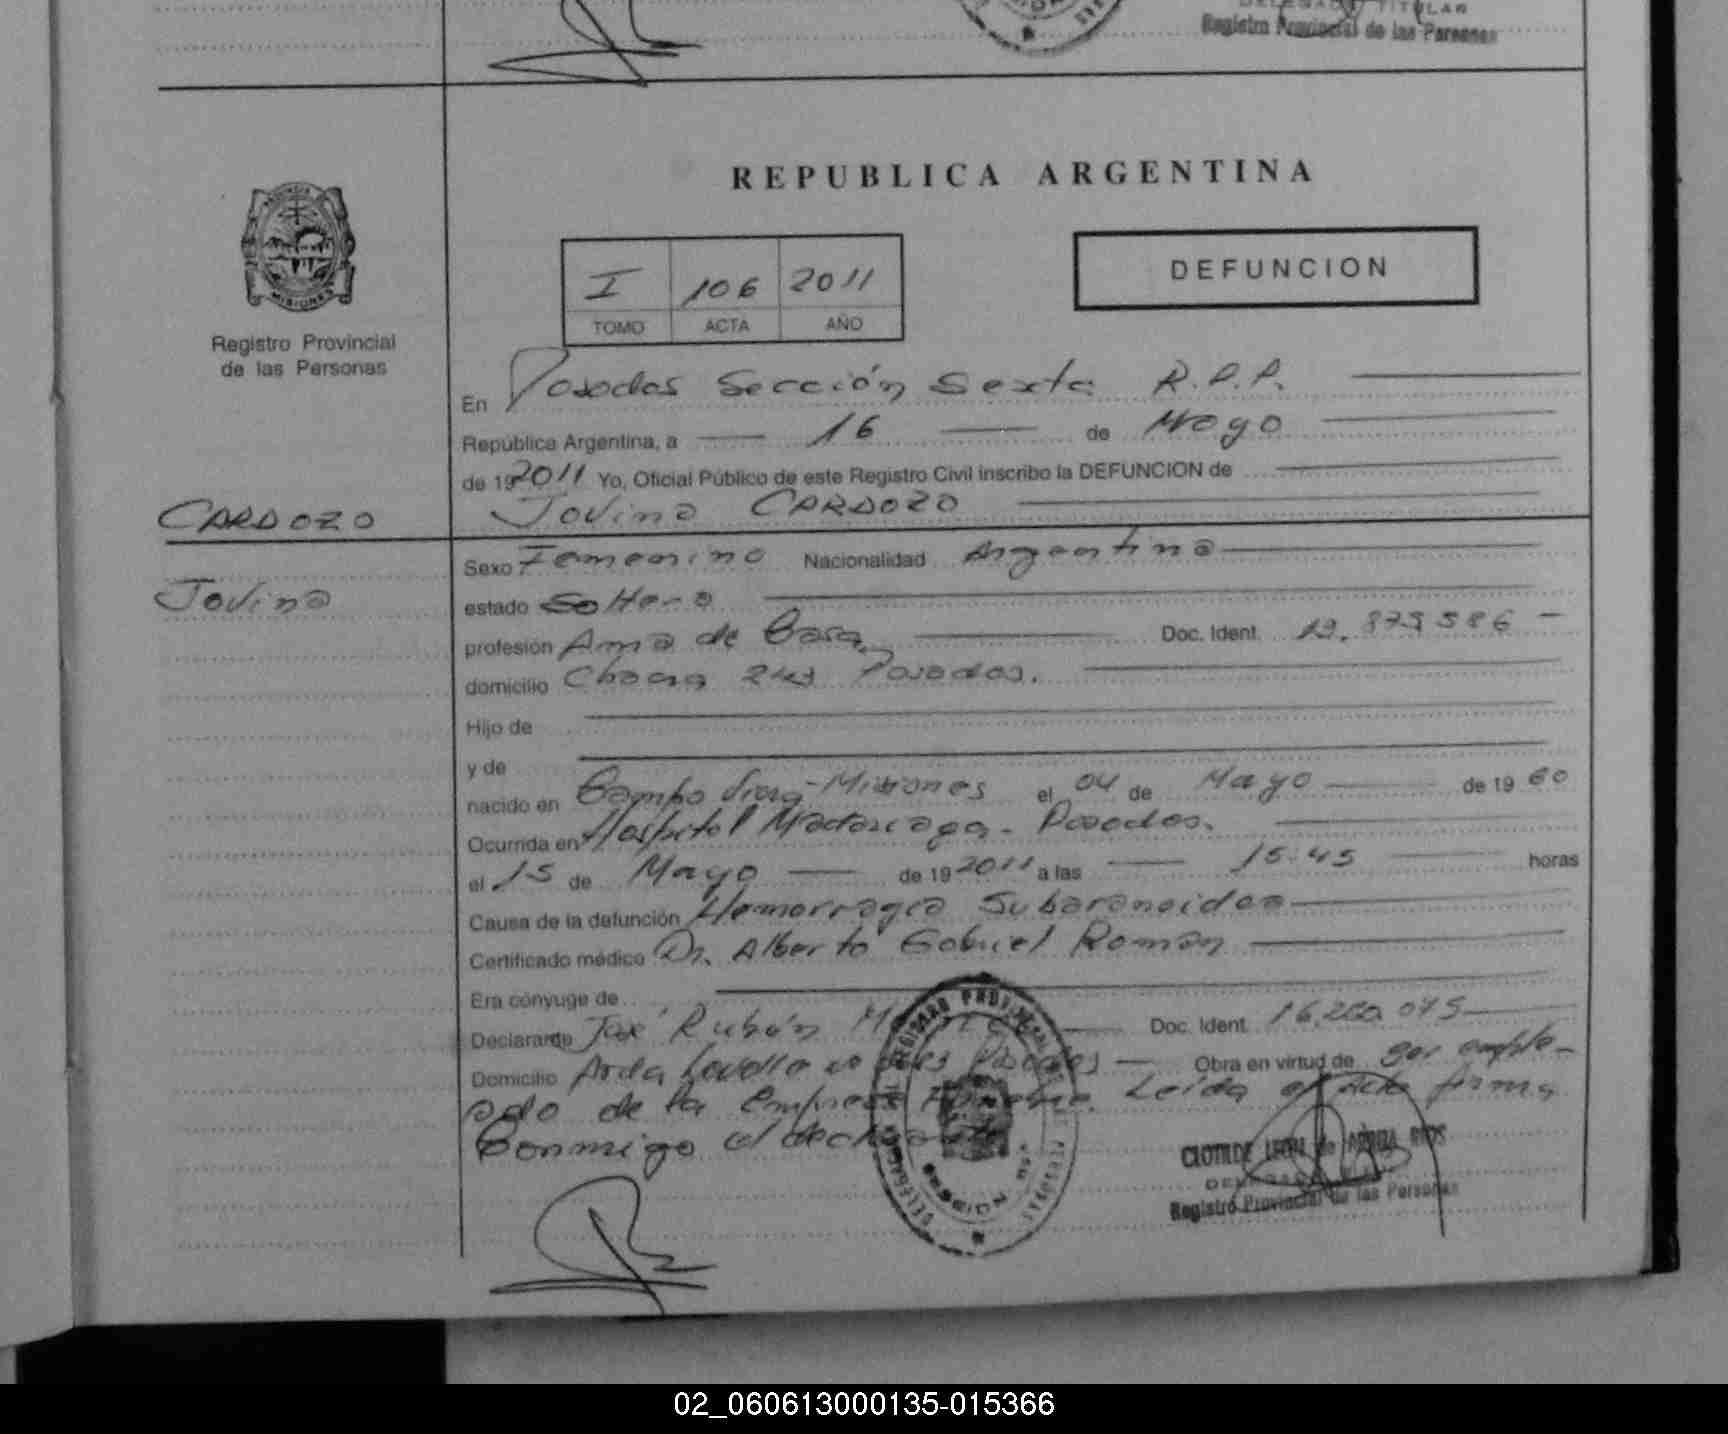 DELEGADO TITULAR
Registro Provincial de las Personas
REPUBLICA ARGENTINA
DEFUNCION
I 106 2011
TOMO ACTA AÑO
MISIONES
Registro Provincial
de las Personas
En Posadas Sección Sexta R.P.P.
República Argentina, a 16 de Mayo
de 192011 Yo, Oficial Público de este Registro Civil inscribo la DEFUNCION de
CARDOZO
Jovina CARDOZO
Jovina
Sexo Femenino Nacionalidad Argentina
estado Soltera
profesión Ama de Casa Doc. Ident.
domicilio Chacra Posadas.
Hijo de
y de
nacido en Campo Viera-Misiones el 04 de Mayo de 19 60
Ocurrida en Hospital Madariaga - Posadas.
el 15 de Mayo de 19 2011 a las 15:45 horas
Causa de la defunción Hemorragia Subaranoidea
Certificado médico Dr. Alberto Gabriel Román
Era cónyuge de
Declarante José Rubén Doc. Ident.
Domicilio Avda Posadas Obra en virtud de ser emple-
ado de la Empresa Leída el Acta firma
Conmigo el declarante
REGISTRO PROVINCIAL DE LAS PERSONAS
CLOTILDE RIOS
Registro Provincial de las Personas
02_060613000135-015366